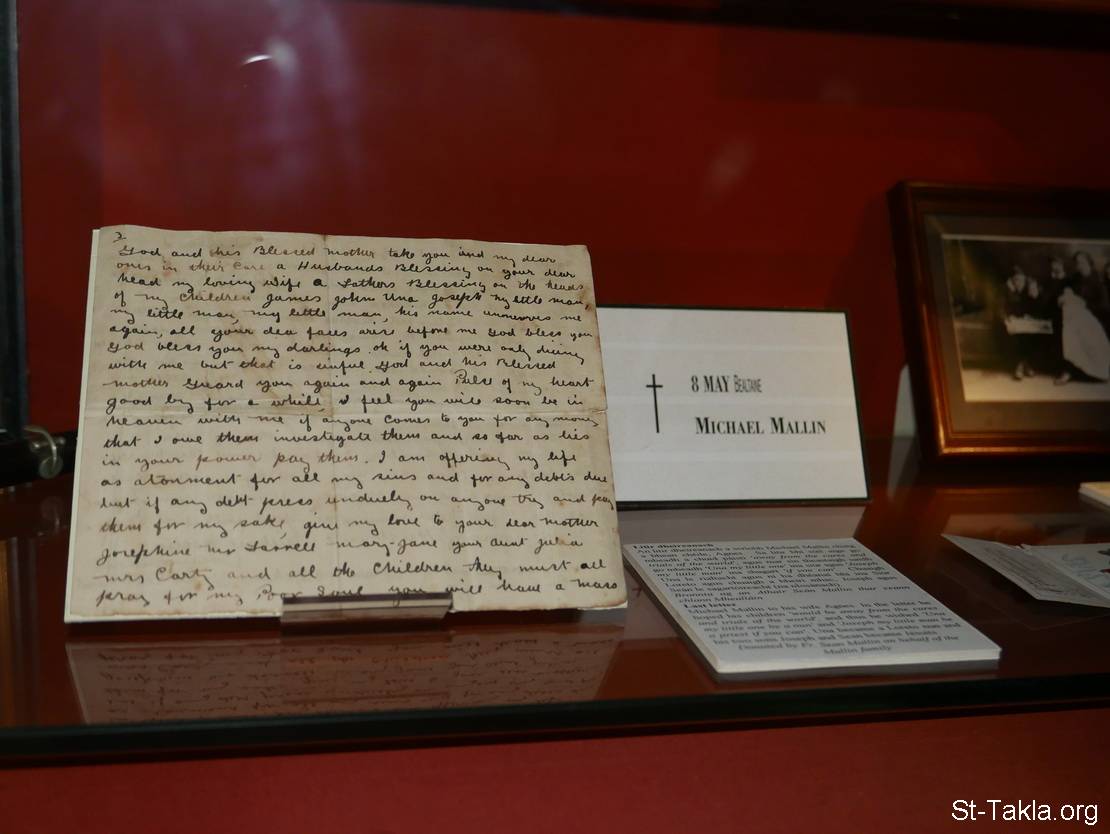 2
God and his Blessed mother take you and my dear
ones in their care a Husbands Blessing on your dear
head my loving wife a Fathers Blessing on the heads
of my children James John Una Joseph my little man,
my little man, my little man, his name unnerves me
again, all your dear faces arise before me God bless you
God bless you my darlings. oh if you were only dieing
with me but that is sinful God and his Blessed
mother Guard you again and again Pulse of my heart
good by for a while, I feel you will soon be in
heaven with me if anyone comes to you for any money
that I owe them investigate them and so far as lies
in your power pay them. I am offering my life
as atonment for all my sins and for any debts due
but if any debt press unduely on anyone try and pay
them for my sake, give my love to your dear mother
Josephine mr Farrell mary-Jane your aunt Julia
mrs Carty and all the children they must all
pray for my Poor Soul you will have a mass
8 MAY BEALTAINE
MICHAEL MALLIN
Litir dheireanach
An litir dheireanach a scríobh Michael Mallin chuig
a bhean chéile, Agnes.
Last letter
Michael Mallin to his wife Agnes. In the letter he
hoped his children 'would be away from the cares
and trials of the world', and thus he wished 'Una
my little one be a nun' and 'Joseph my little man be
a priest if you can'. Una became a Loreto nun and
his two sons Joseph and Sean became Jesuits.
Donated by Fr. Sean Mallin on behalf of the
Mallin family.
St-Takla.org